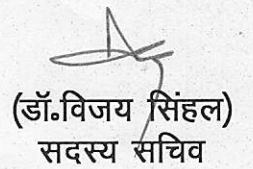 (डॉ.विजय सिंहल)
सदस्य सचिव